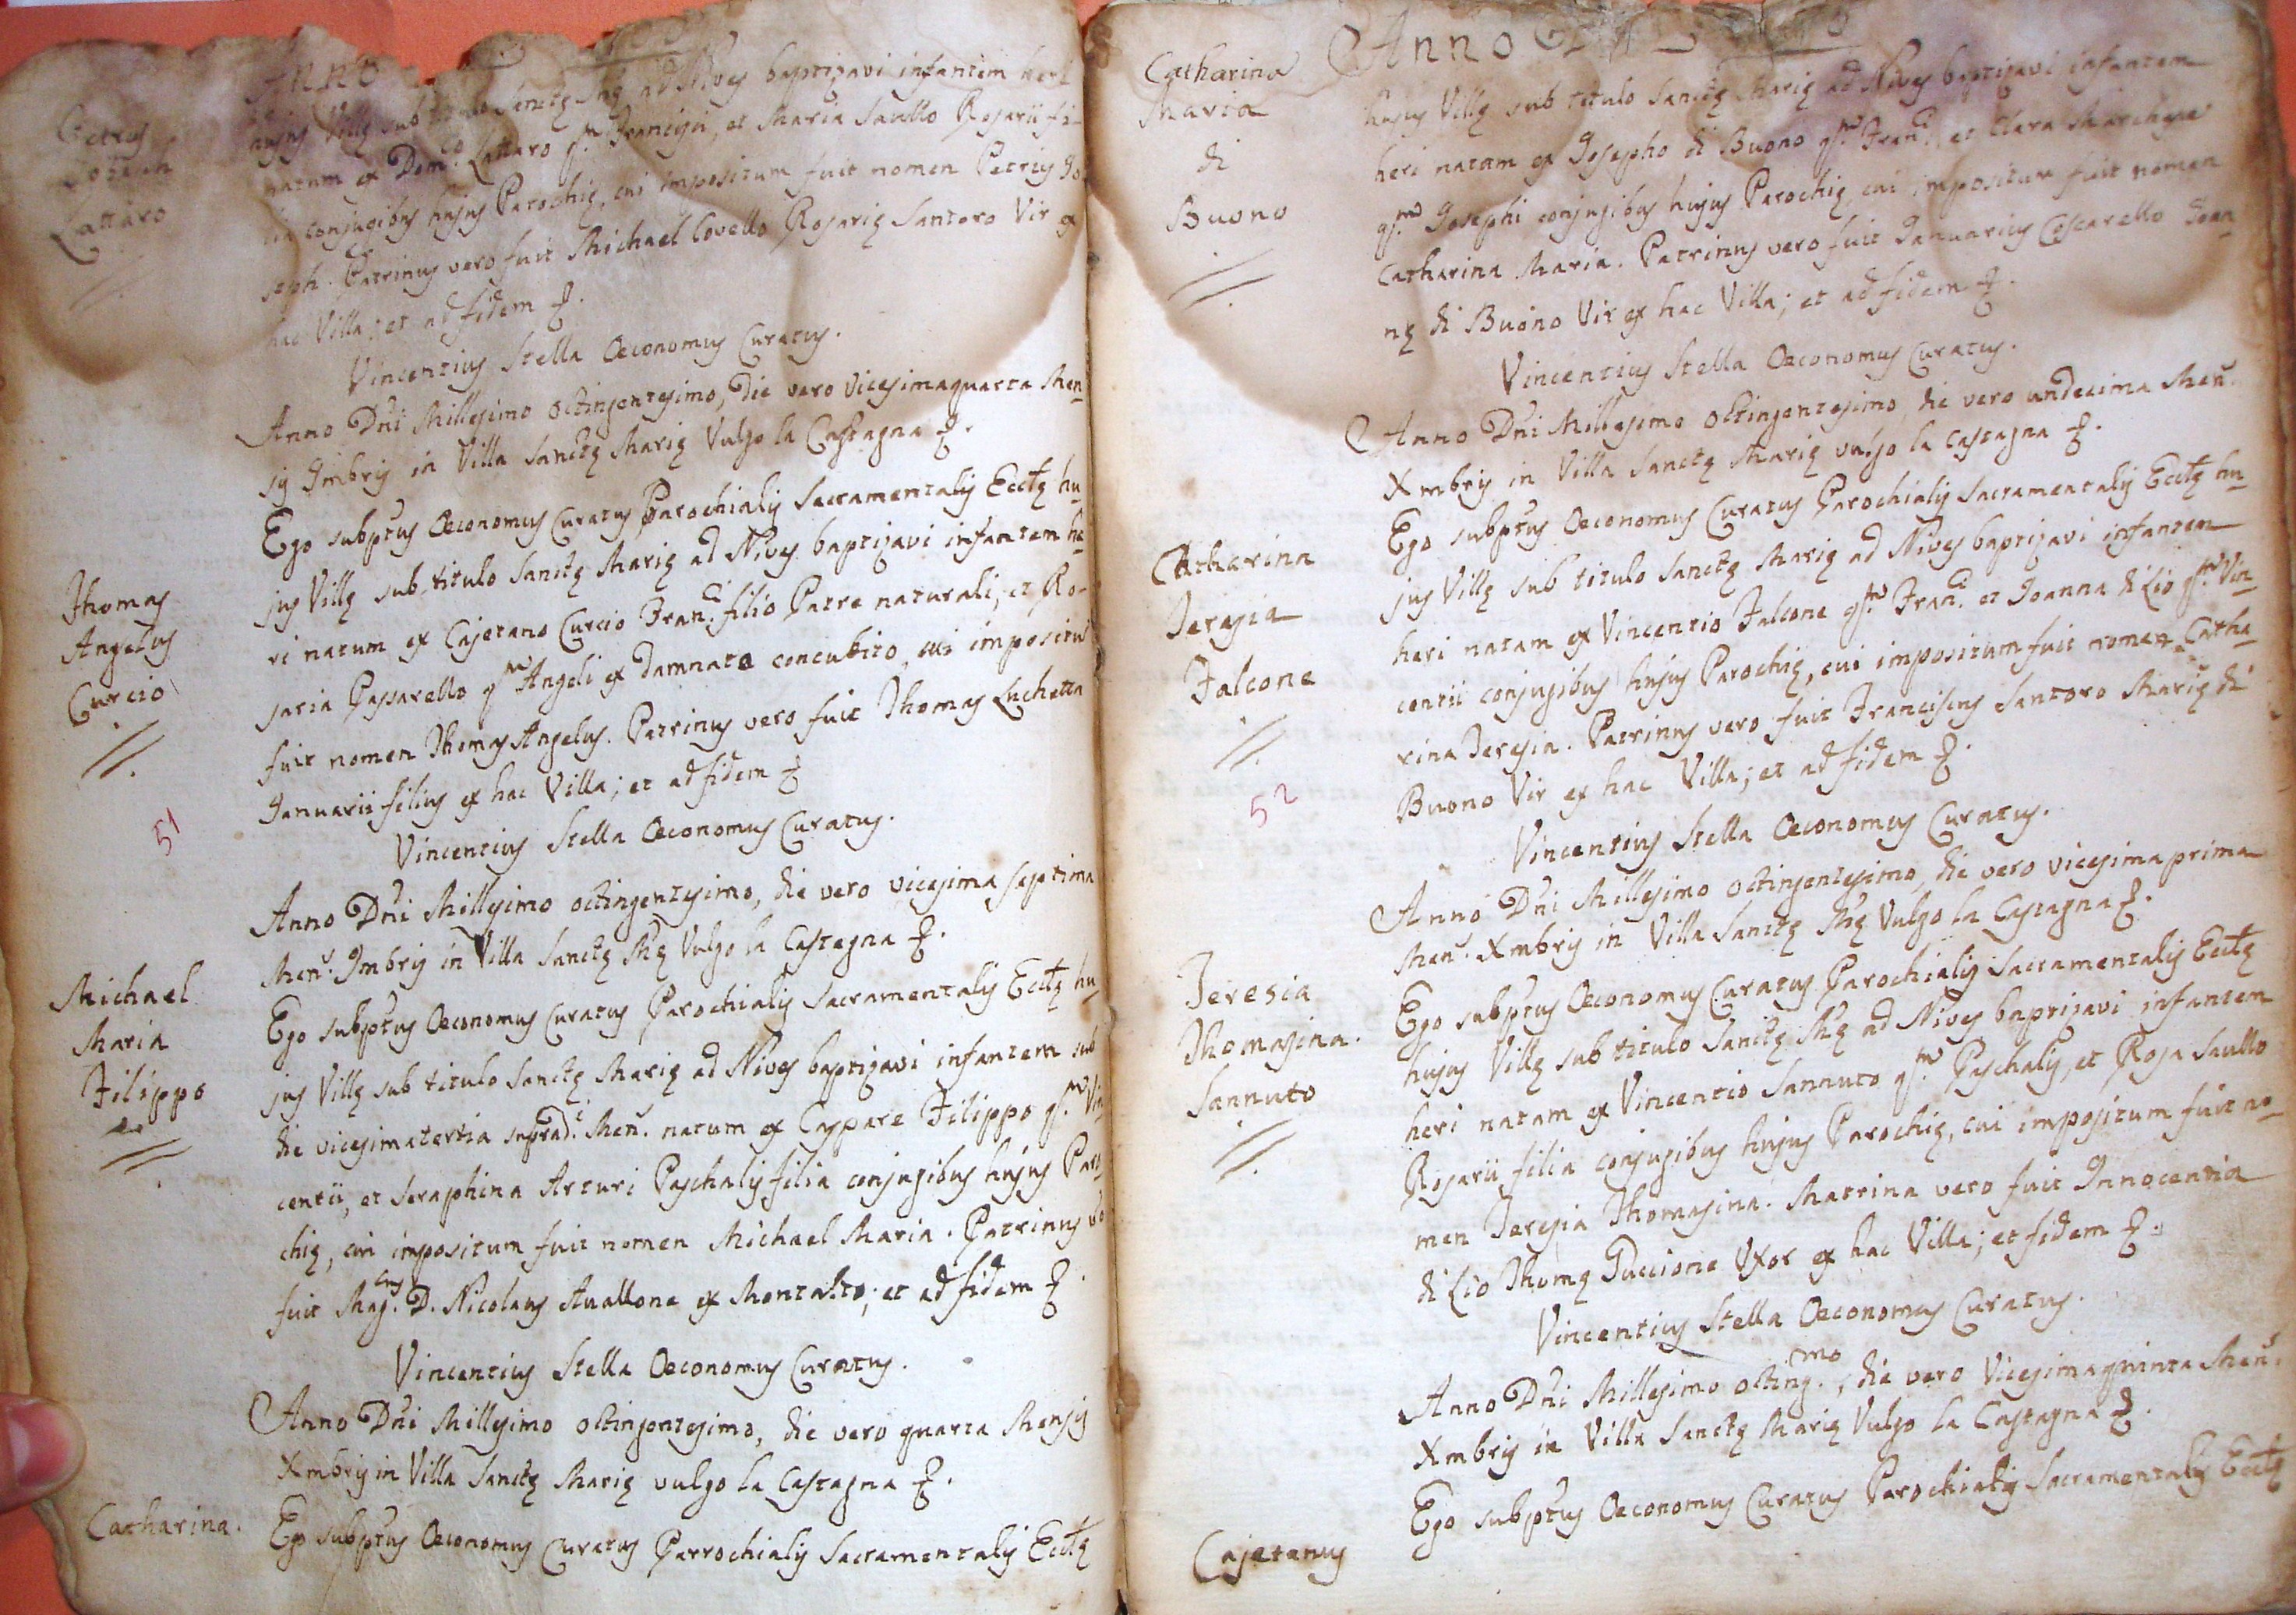 Anno
Petrus
Joseph
Lattaro
hujus Villę sub titulo Sanctę Mrę ad Nives baptizavi infantem heri
natum ex Dom.co Lattaro qm. Francisci, et Maria Saullo Rosarii fi-
lia conjugibus hujus Parochię, cui impositum fuit nomen Petrus Jo
seph. Patrinus vero fuit Michael Covello Rosarię Santoro Vir ex
hac Villa; et ad fidem &.
Vincentius Stella Oeconomus Curatus.
Anno Dñi Millesimo octingentesimo, die vero vicesimaquarta Men
sis 9mbris in Villa Sanctę Marię Vulgo la Castagna &.
Thomas
Angelus
Curcio
Ego subptus Oeconomus Curatus Parochialis Sacramentalis Ecclę hu
jus Villę sub titulo Sanctę Marię ad Nives baptizavi infantem he
ri natum ex Cajetano Curcio Fran.ci filio Patre naturali, et Ro-
saria Passarello qm Angeli ex damnato concubito, cui impositũ
fuit nomen Thomas Angelus. Patrinus vero fuit Thomas Luchetta
Januarii filius ex hac Villa; et ad fidem &
Vincentius Stella Oeconomus Curatus.
51
Anno Dñi Millesimo octingentesimo, die vero vicesima septima
Men. 9mbris in Villa Sanctę Mrę Vulgo la Castagna &.
Michael
Maria
Filippo
Ego subptus Oeconomus Curatus Parochialis Sacramentalis Ecclę hu
jus Villę sub titulo Sanctę Marię ad Nives baptizavi infantem sub
die vicesimatertia suprad.i Men. natum ex Caspare Filippo qm. Vin
centii, et Seraphina Arturi Paschalis filia conjugibus hujus Paro
chię, cui impositum fuit nomen Michael Maria. Patrinus vo
fuit Mag.cus D. Nicolaus Avallone ex Montalto; et ad fidem &.
Vincentius Stella Oeconomus Curatus.
Anno Dñi Millesimo octingentesimo, die vero quarta Mensis
Xmbris in Villa Sanctę Marię vulgo la Castagna &.
Catharina.
Ego subptus Oeconomus Curatus Parrochialis Sacramentalis Ecclę
Anno
Catharina
Maria
di
Buono
hujus Villę sub titulo Sanctę Marię ad Nives baptizavi infantem
heri natam ex Josepho di Buono qm. Fran.ci, et Clara Marchese
qm. Josephi conjugibus hujus Parochię, cui impositum fuit nomen
Catharina Maria. Patrinus vero fuit Januarius Coscarello Joan
nę di Buono Vir ex hac Villa; et ad fidem &.
Vincentius Stella Oeconomus Curatus.
Anno Dñi Millesimo octingentesimo, die vero undecima Men.
Xmbris in Villa Sanctę Marię vulgo la Castagna &.
Catharina
Teresia
Falcone
Ego subptus Oeconomus Curatus Parochialis Sacramentalis Ecclę hu
jus Villę sub titulo Sanctę Marię ad Nives baptizavi infantem
heri natam ex Vincentio Falcone qm. Fran.ci et Joanna di Lio qm. Vin
centii conjugibus hujus Parochię, cui impositum fuit nomen Catha
rina Teresia. Patrinus vero fuit Franciscus Santoro Marię di
Buono Vir ex hac Villa; et ad fidem &.
Vincentius Stella Oeconomus Curatus.
52
Anno Dñi Millesimo octingentesimo, die vero vicesima prima
Men. Xmbris in Villa Sanctę Mrę Vulgo la Castagna &.
Teresia
Thomasina.
Sannuto
Ego subptus Oeconomus Curatus Parochialis Sacramentalis Ecclę
hujus Villę sub titulo Sanctę Mrę ad Nives baptizavi infantem
heri natam ex Vincentio Sannuto qm. Paschalis, et Rosa Saullo
Rosarii filia conjugibus hujus Parochię, cui impositum fuit no
men Teresia Thomasina. Matrina vero fuit Innocentia
di Lio Thomę Puccione Uxor ex hac Villa; et fidem &.
Vincentius Stella Oeconomus Curatus.
Anno Dñi Millesimo octing.mo, die vero Vicesimaquinta Men.
Xmbris in Villa Sanctę Marię Vulgo la Castagna &.
Cajetanus
Ego subptus Oeconomus Curatus Parochialis Sacramentalis Ecclę